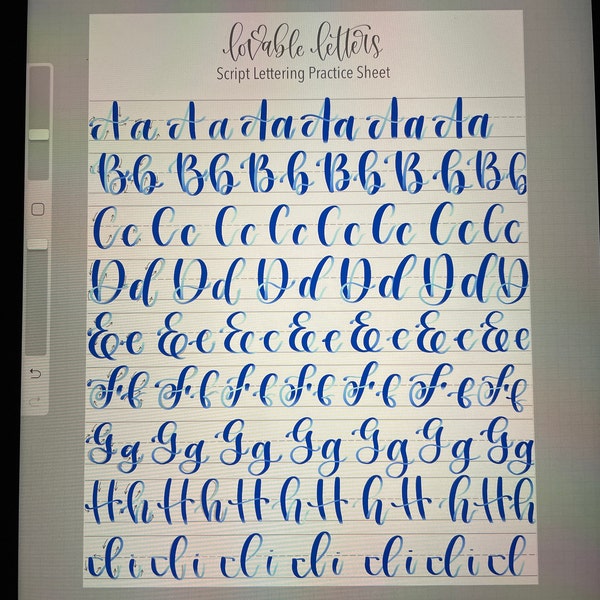 lovable letters
Script Lettering Practice Sheet
Aa Aa Aa Aa Aa Aa
Bb Bb Bb Bb Bb Bb
Cc Cc Cc Cc Cc Cc Cc Cc
Dd Dd Dd Dd Dd D
Ee Ee Ee Ee Ee Ee Ee
Ff Ff Ff Ff Ff Ff Ff
Gg Gg Gg Gg Gg Gg Gg
Hh Hh Hh Hh Hh Hh
Ii Ii Ii Ii Ii Ii I